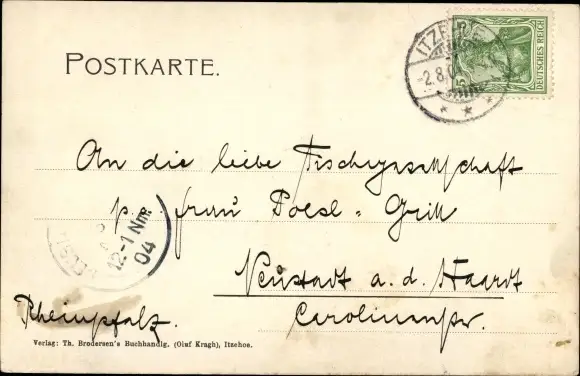 POSTKARTE.
DEUTSCHES REICH
ITZEH
-2.8.0
An die liebe Tischgesellschaft
p. frau Poesl = Grill
12-1 Nm.
04
Neustadt a. d. Haardt
Rheinpfalz.
Carolinenstr.
Verlag: Th. Brodersen's Buchhandlg. (Olaf Kragh), Itzehoe.